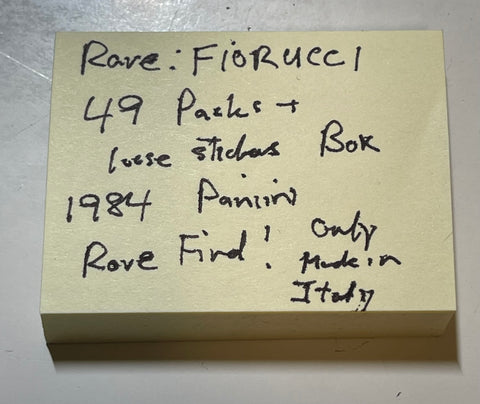 Rare: FIORUCCI
49 Packs +
loose stickers Box
1984 Panini
Rare Find! Only
Made in
Italy